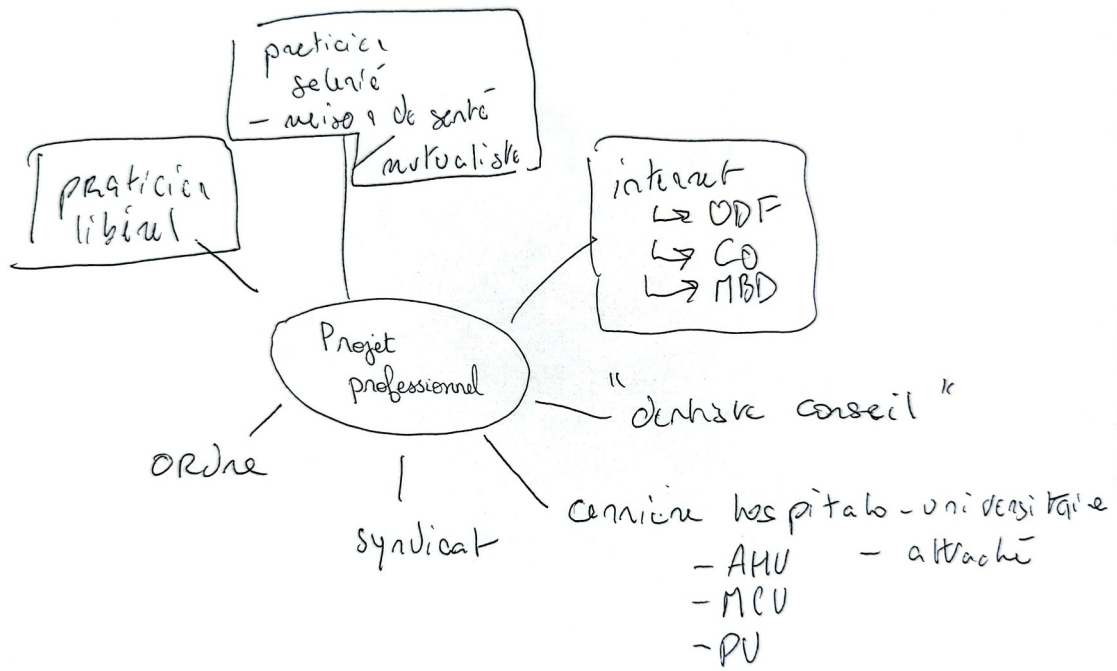 praticien
salarié
- maison de santé
mutualiste
praticien
libéral
internat
↳ ODF
↳ CO
↳ MBD
Projet
professionnel
"dentiste conseil"
ORDre
syndicat
carrière hospitalo-universitaire
- AHU - attaché
- MCU
- PU